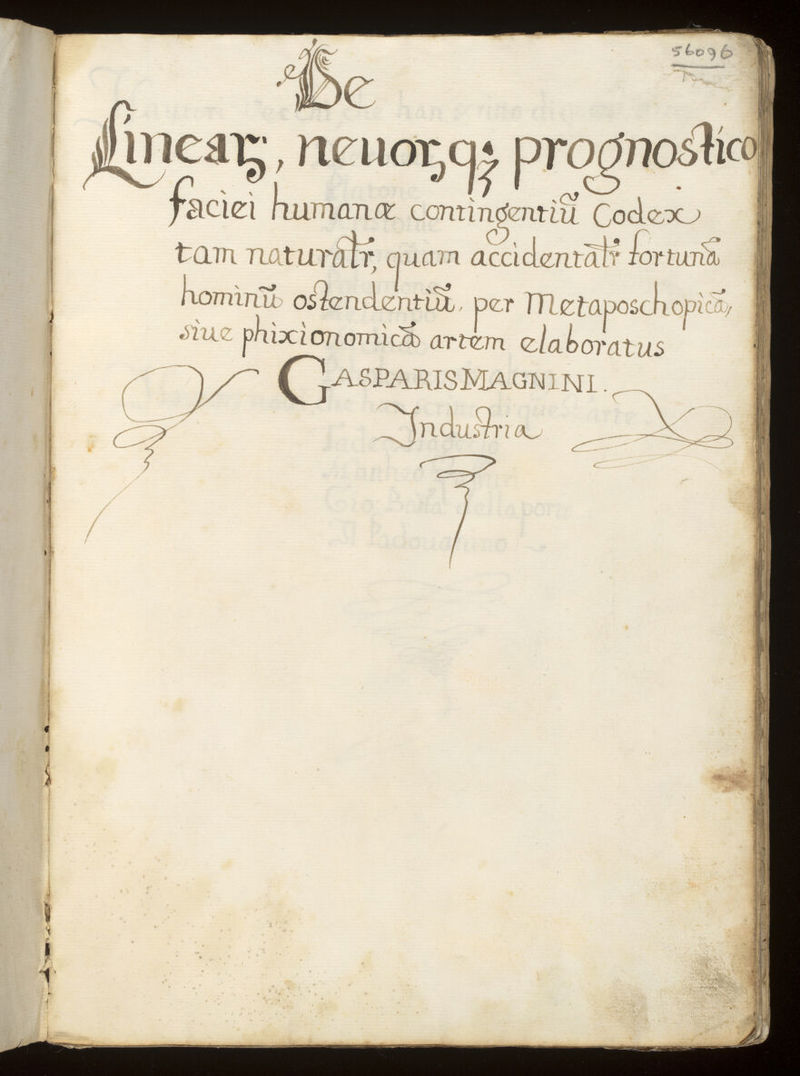 56096
De
Lineaꝝ, neuoꝝqꝫ prognostico
faciei humanæ contingentiũ Codex
tam naturalr̃, quam accidentalr̃ fortunã
hominũ ostendentiũ. per Metaposchopicã,
siue phixionomicã artem elaboratus
GASPARIS MAGNINI.
Industria